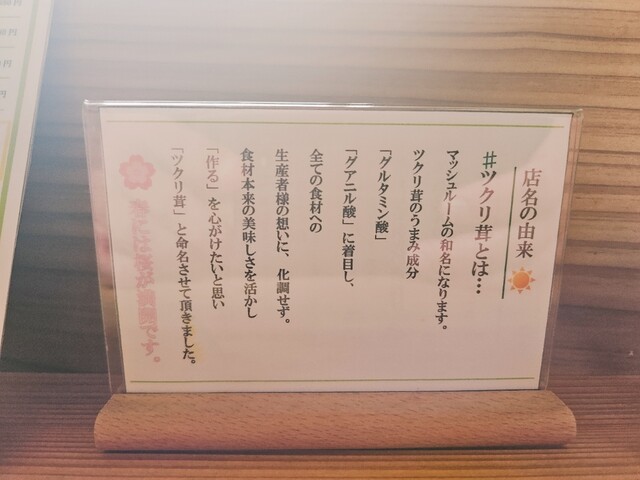 店名の由来
#ツクリ茸とは…
マッシュルームの和名になります。
ツクリ茸のうまみ成分
「グルタミン酸」
「グアニル酸」に着目し、
全ての食材への
生産者様の想いに、化調せず。
食材本来の美味しさを活かし
「作る」を心がけたいと思い
「ツクリ茸」と命名させて頂きました。
です。
円
円
円